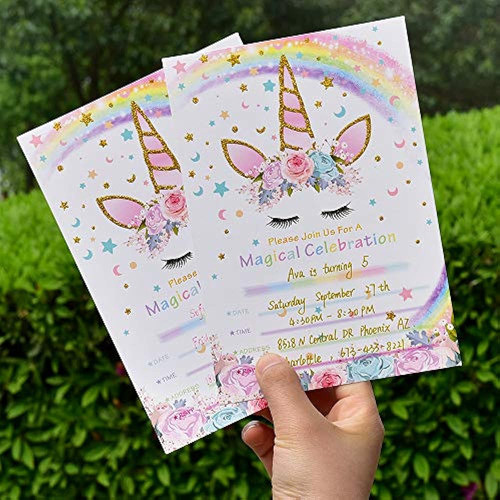 Please Join Us For A
Magical Celebration
Ava is turning 5
Saturday September 27th
4:30PM - 8:30PM
8518 N Central DR Phoenix AZ
673-433-8221
Please
Magical
DATE
TIME
ADDRESS